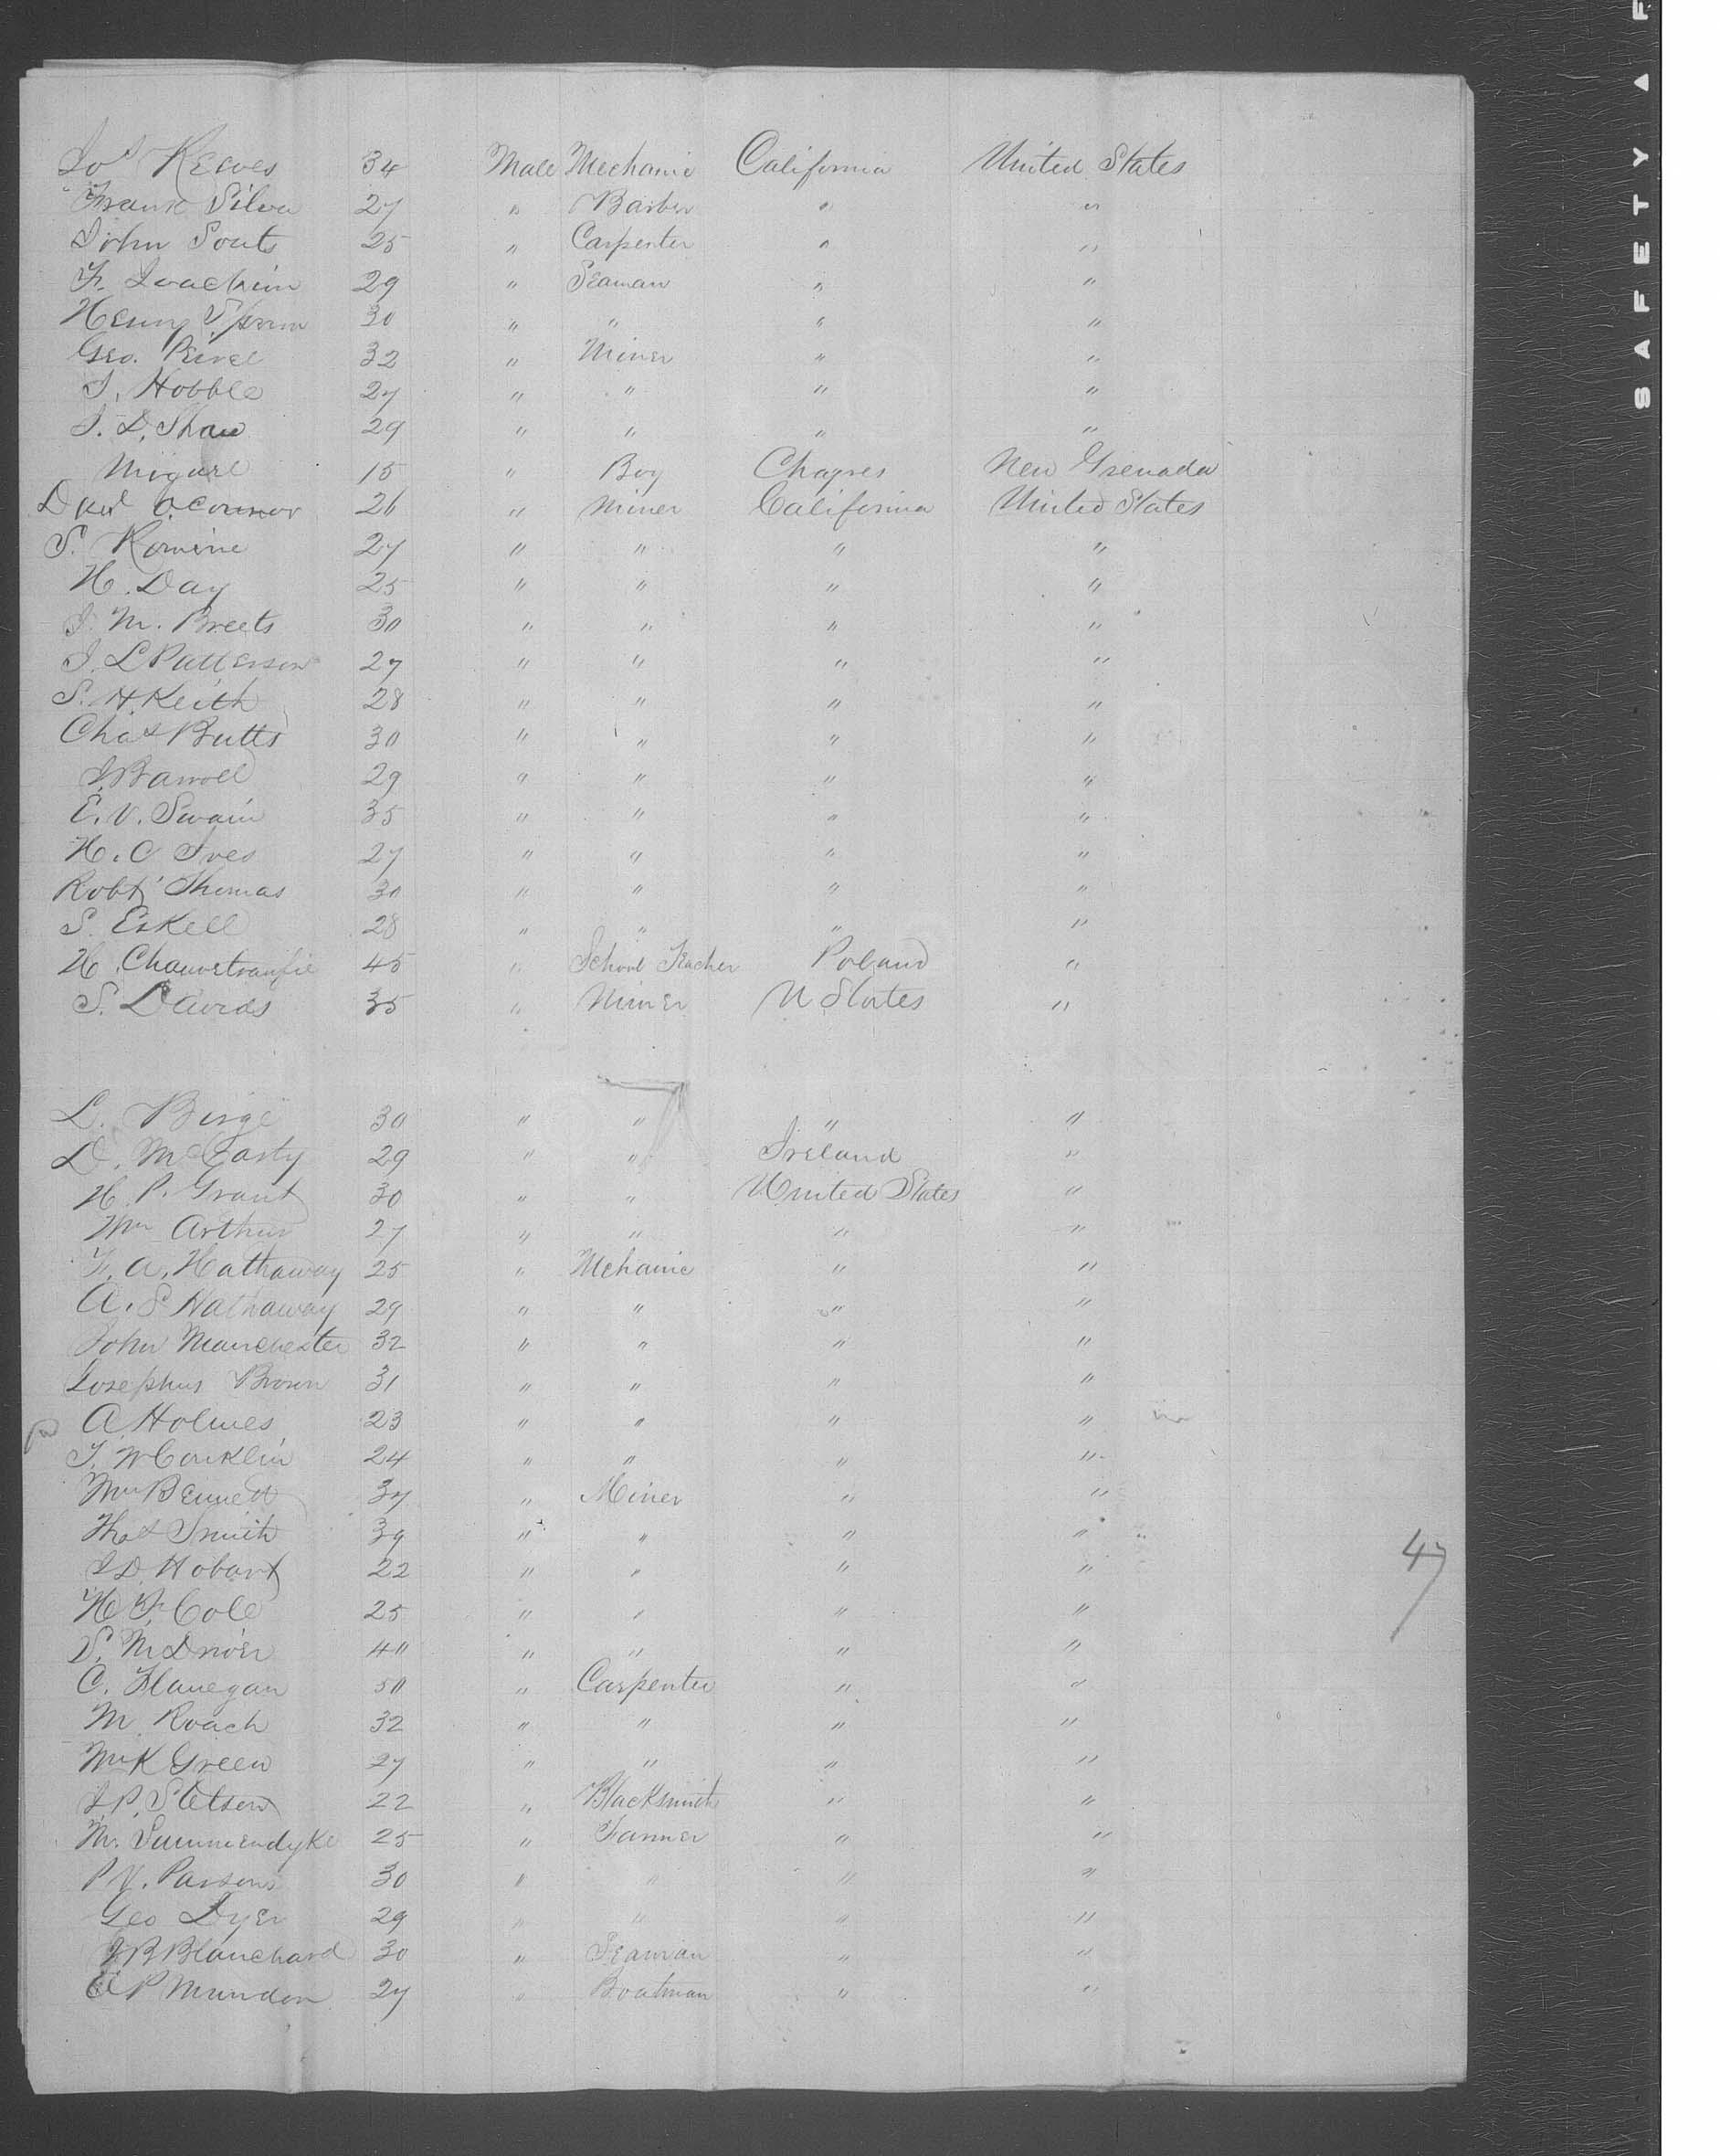 Jos Reeves 34 Male Mechanic California United States
Frank Silva 27 " Barber " "
John Souts 25 " Carpenter " "
F. Joachim 29 " Seaman " "
Henry 30 " " " "
Geo. Peirce 32 " Miner " "
J. Hobble 27 " " " "
J. D. Shaw 29 " " " "
Miguel 15 " Boy Chagres New Grenada
Danl O'Connor 26 " Miner California United States
S. Romine 27 " " " "
H. Day 25 " " " "
J. M. Breets 30 " " " "
J. L Patterson 27 " " " "
S. H. Keith 28 " " " "
Chas Butts 30 " " " "
J. Barrell 29 " " " "
E. V. Swain 35 " " " "
H. C Ives 27 " " " "
Robt Thomas 30 " " " "
S. Eskell 28 " " " "
H. 45 " School Teacher Poland "
S. Davids 35 " Miner U States "
L. Birge 30 " " " "
D. McCarty 29 " " Ireland "
H. P. Grant 30 " " United States "
Wm Arthur 27 " " " "
F. A. Hathaway 25 " Mehanic " "
A. S Hathaway 29 " " " "
John Manchester 32 " " " "
Josephus Brown 31 " " " "
A. Holmes 23 " " " "
T. W Conklin 24 " " " "
Wm Bennett 37 " Miner " "
Thos Smith 39 " " " "
J D. Hobart 22 " " " "
H. F. Cole 25 " " " "
47
S. McDriver 40 " " " "
C. Flanegan 50 " Carpenter " "
M. Roach 32 " " " "
Wm K Green 27 " " " "
J. P. Stetson 22 " Blacksmith " "
M. Summendyke 25 " Farmer " "
P V. Parsons 30 " " " "
Geo Dyer 29 " " " "
J B Blanchard 30 " Seaman " "
A P Munden 27 " Boatman " "
SAFETY F